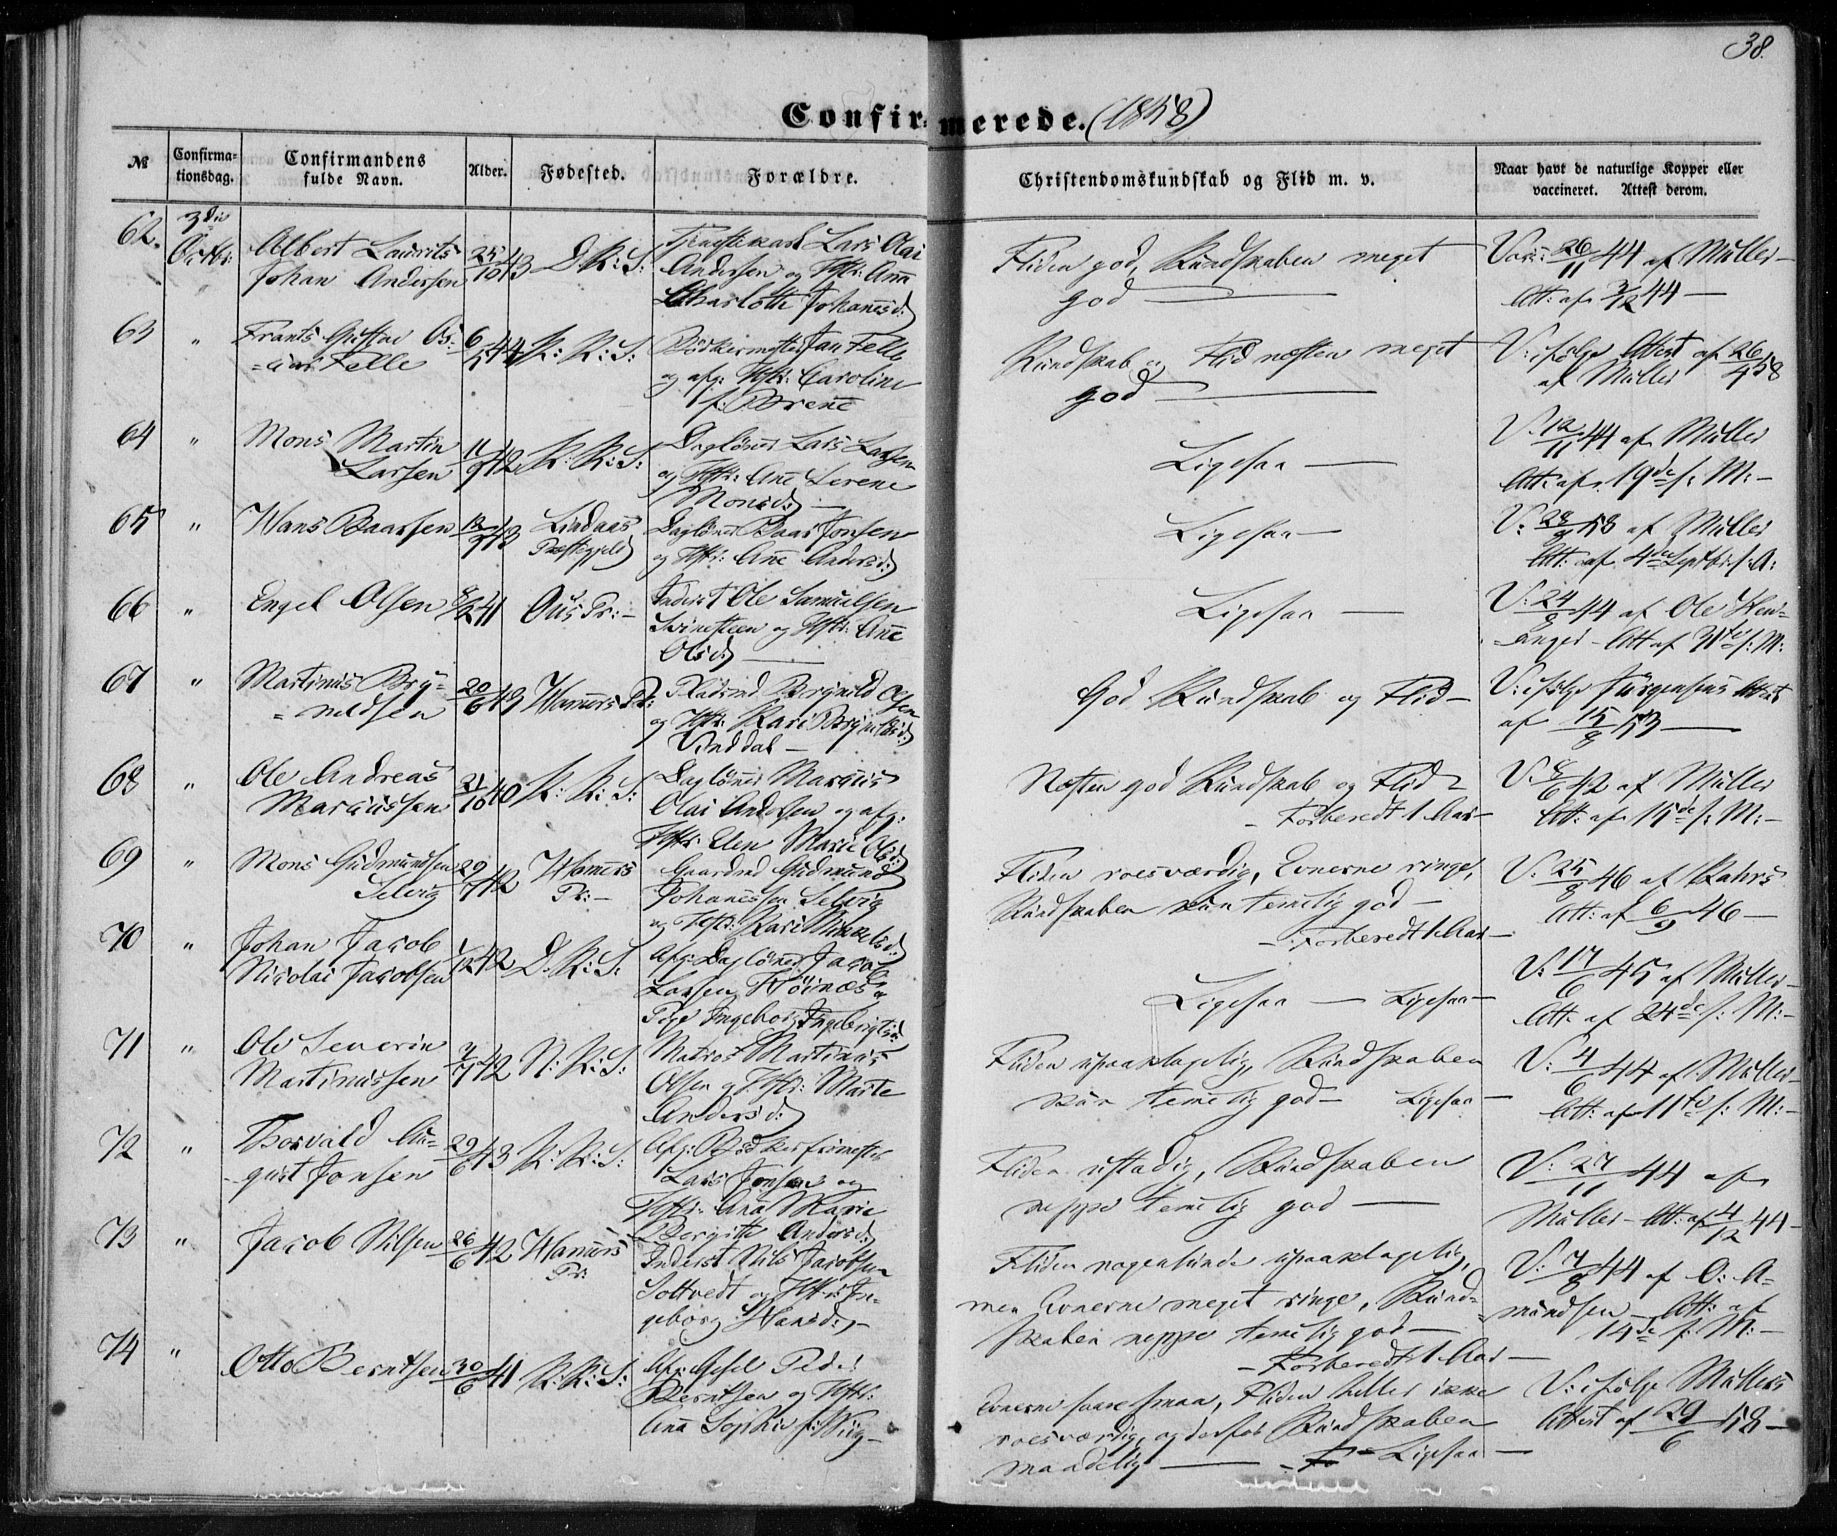 38.
Confirmerede. (1858)
№
Confirma-
tionsdag.
Confirmandens
fulde Navn.
Alder.
Fødested.
Forældre.
Christendomskundskab og Flid m. v.
Naar havt de naturlige Kopper eller
vaccineret. Attest derom.
62. 3die Octbr: Albert Laurits
Johan Andersen 25/10 43 D: K: S:
Lars Olai
Andersen og Hstr: Ane
Charlotte Johannesd:
Fliden god, Kundskaben meget
god —
Vac: 26/11 44 af Müller —
Att: af 3/12 44 —
63 " Frants Gustav Os-
=car Felle 6/1 44 K: K: S:
Bødkermester Jan Felle
og afg: Hstr: Caroline
f: Brenne
Kundskab og Flid næsten meget
god —
V: ifølge Attest af 26/4 58
af Müller
64 " Mons Martin
Larsen 11/9 42 K: K: S:
Dagløner Lars Larsen
og Hstr: Ane Serene
Monsd: —
Ligesaa —
V: 12/11 44 af Müller
Att: af 19de s: M: —
65 " Hans Baarsen 12/9 43 Lindaas
Præstegjeld
Dagløner Baar Jonsen
og Hstr: Ane Andersd:
Ligesaa —
V: 28/8 58 af Müller
Att: af 4de Septbr s: A:
66 " Engel Olsen 8/2 41 Ous Pr: —
Inderst Ole Samuelsen
Svinesteen og Hstr: Ane
Olsd: —
Ligesaa —
V: 24/8 44 af Ole Hen-
=anger — Att af 31te s: M:
67 " Martinus Bry-
=nildsen 20/6 43 Hammers Pr:
Brynild Olsen
og Hstr: Kari Brynildsd:
Vinddal —
God Kundskab og Flid —
V: ifølge Jürgensens Attest
af 15/8 53 —
68 " Ole Andreas
Marcussen 21/10 40 K: K: S:
Dagløner Marcus
Olai Andersen og afg:
Hstr: Elen Marie Olsd:
Næsten god Kundskab og Flid —
— Forberedt 1 Aar —
V: 8/6 42 af Müller
Att: af 15de s: M: —
69 " Mons Gudmundsen
Selvig 29/7 42 Hammers
Pr: —
Gaardmd Gudmund
Johannessen Selvig
og Hstr: Kari Mikkelsd:
Fliden roesværdig, Evnerne ringe,
Kundskaben kun temelig god —
— Forberedt 1 Aar —
V: 25/8 46 af Kahrs
Att: af 6/9 46 —
70 " Johan Jacob
Nicolai Jacobsen 1/12 42 D: K: S:
Afg: Dagløner Jacob
Larsen Høinæs og
Pige Ingeborg Ingebrigtsd:
Ligesaa — Ligesaa —
V: 17/6 45 af Müller —
Att: af 24de s: M: —
71 " Ole Severin
Martinussen 7/7 42 N: K: S:
Matros Martinus
Olsen og Hstr: Marte
Andersd:
Fliden upaaklagelig, Kundskaben
kun temelig god — Ligesaa —
V: 4/6 44 af Müller —
Att: af 11te s: M: —
72 " Thorvald Au-
-gust Jonsen 29/6 43 K: K: S:
Afg: Bødkersvermester
Lars Jonsen og
Hstr: Ane Marie
Bergitte Andersd:
Fliden ustadig, Kundskaben
neppe temelig god —
V: 27/11 44 af
Müller — Att: af 4/12 44 —
73 " Jacob Nilsen 26/6 42 Hammers
Pr:
Inderst Nils Jacobsen
Soltvedt og Hstr: In-
geborg Hansd: —
Fliden nogenlunde upaaklagelig,
men Evnerne meget ringe, Kund-
skaben neppe temelig god —
— Forberedt 1 Aar —
V: 7/8 44 af O: A-
=mundsen — Att: af
14de s: M: —
74 " Otto Berntsen 30/6 41 K: K: S:
Afg: Gesel Peder
Berntsen og Hstr:
Ana Sophie f: Wiig —
Evnerne saare smaa, Fliden heller ikke
roesværdig, og derfor Kundskaben
maadelig — Ligesaa —
V: ifølge Müllers
Attest af 29/6 58 —